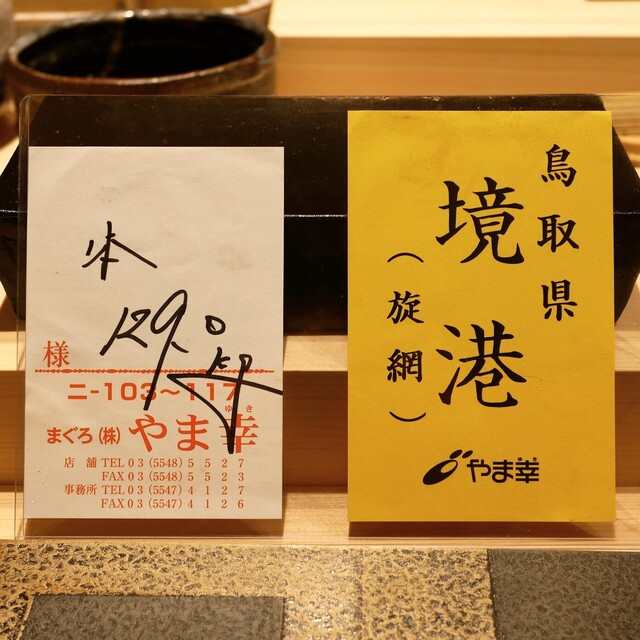 本
129.0 kg
様
ニ-103〜117
まぐろ(株) やま幸
ゆき
店舗 TEL 03 (5548) 5527
FAX 03 (5548) 5523
事務所 TEL 03 (5547) 4127
FAX 03 (5547) 4126
鳥取県
境港
(旋網)
やま幸
ゆき